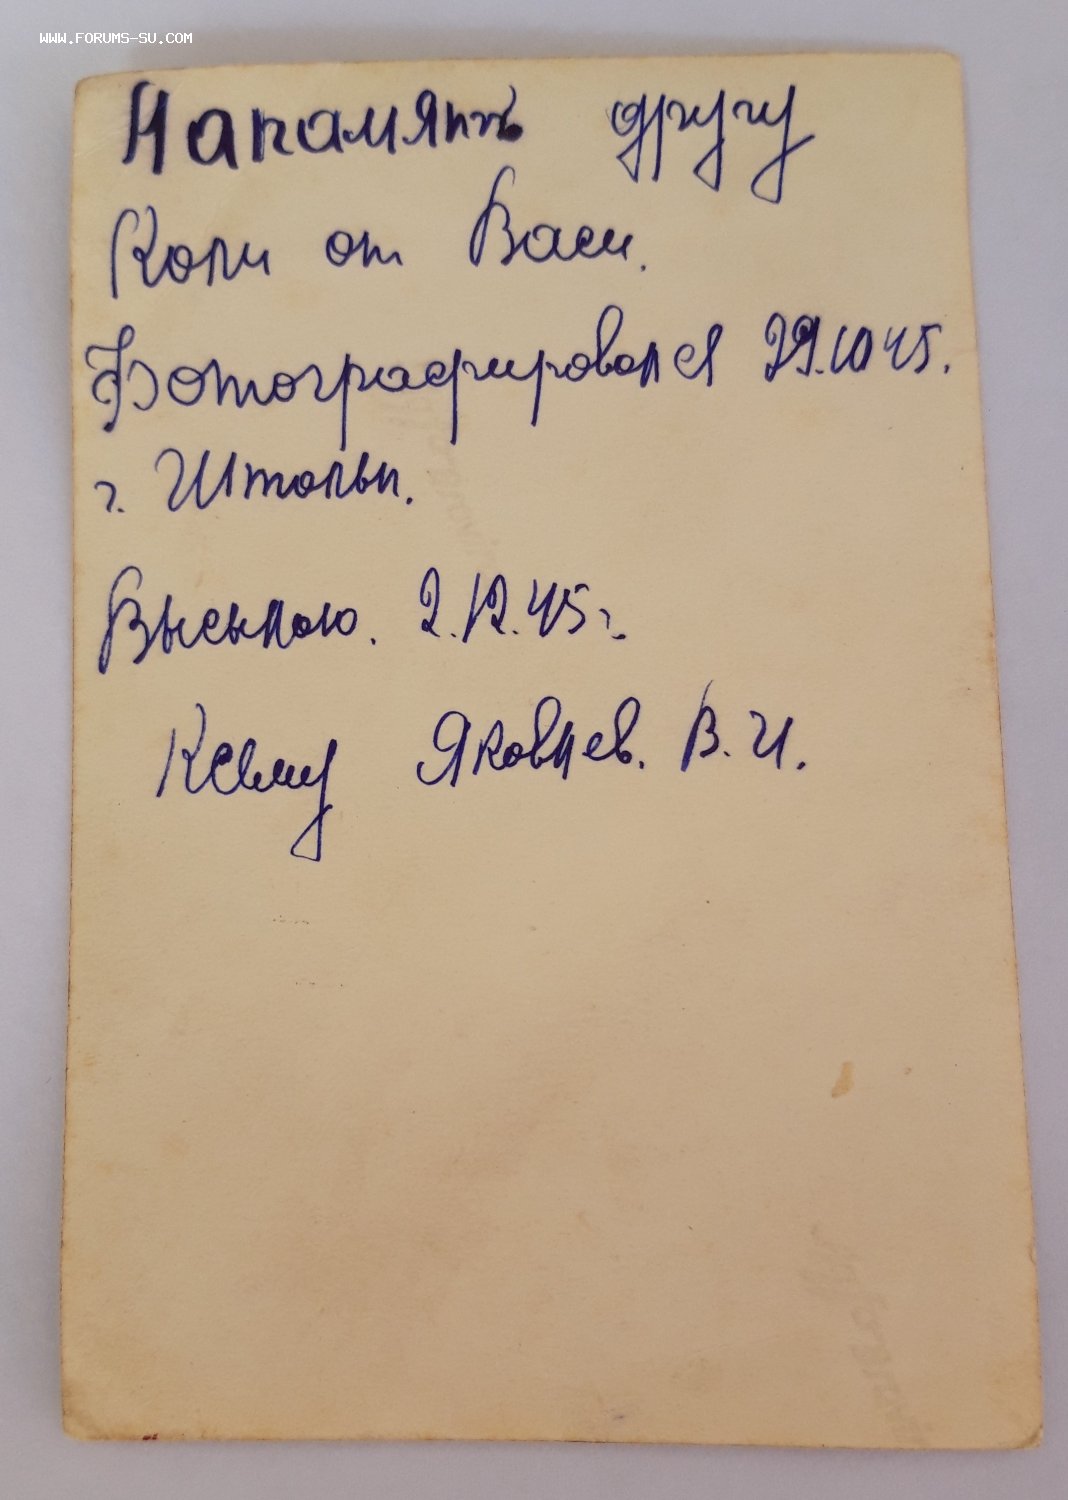 WWW.FORUMS-SU.COM
На память другу
Коли от Васи.
Фотографировался 29.10 45.
г. Штольп.
Высылаю. 2.12.45 г.
Ксему Яковлев. В. И.